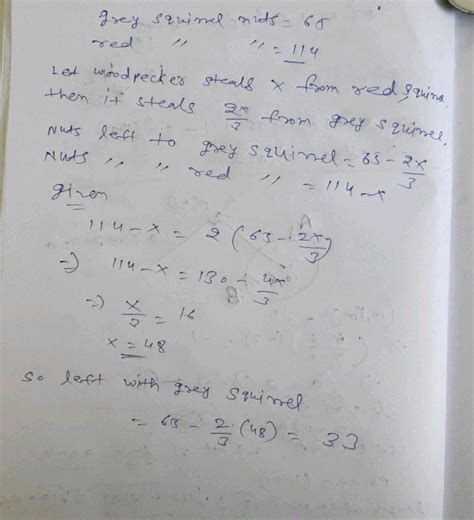 grey squirrel nuts = 65
red " " = 114
Let woodpecker steals x from red squirre
then it steals 2x/3 from grey squirrel.
Nuts left to grey squirrel = 65 - 2x/3
Nuts " " red " = 114 - x
given
114 - x = 2 (65 - 2x/3)
⇒ 114 - x = 130 - 4x/3
⇒ x/3 = 16
x = 48
so left with grey squirrel
= 65 - 2/3 (48) = 33